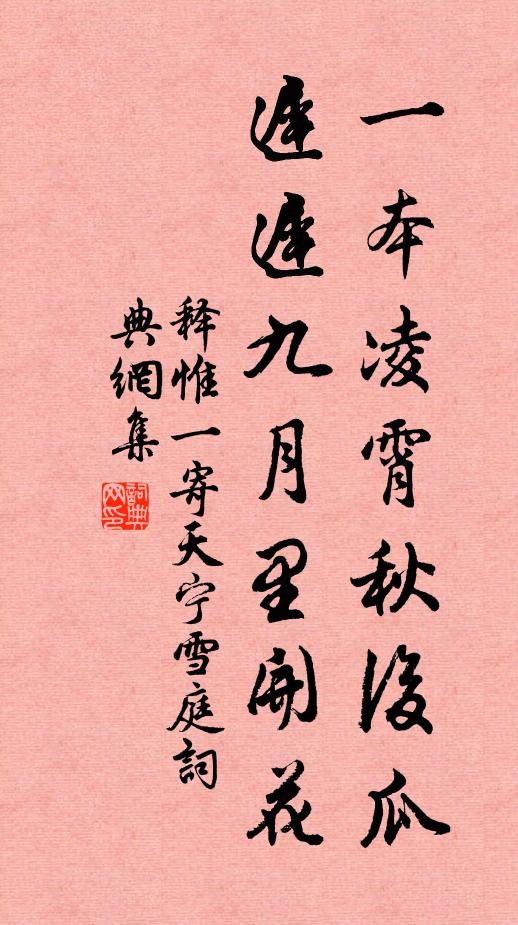 一本凌霄秋後瓜
遲遲九月里開花
释惟一寄天宁雪庭詞
典網集
詞典
网印